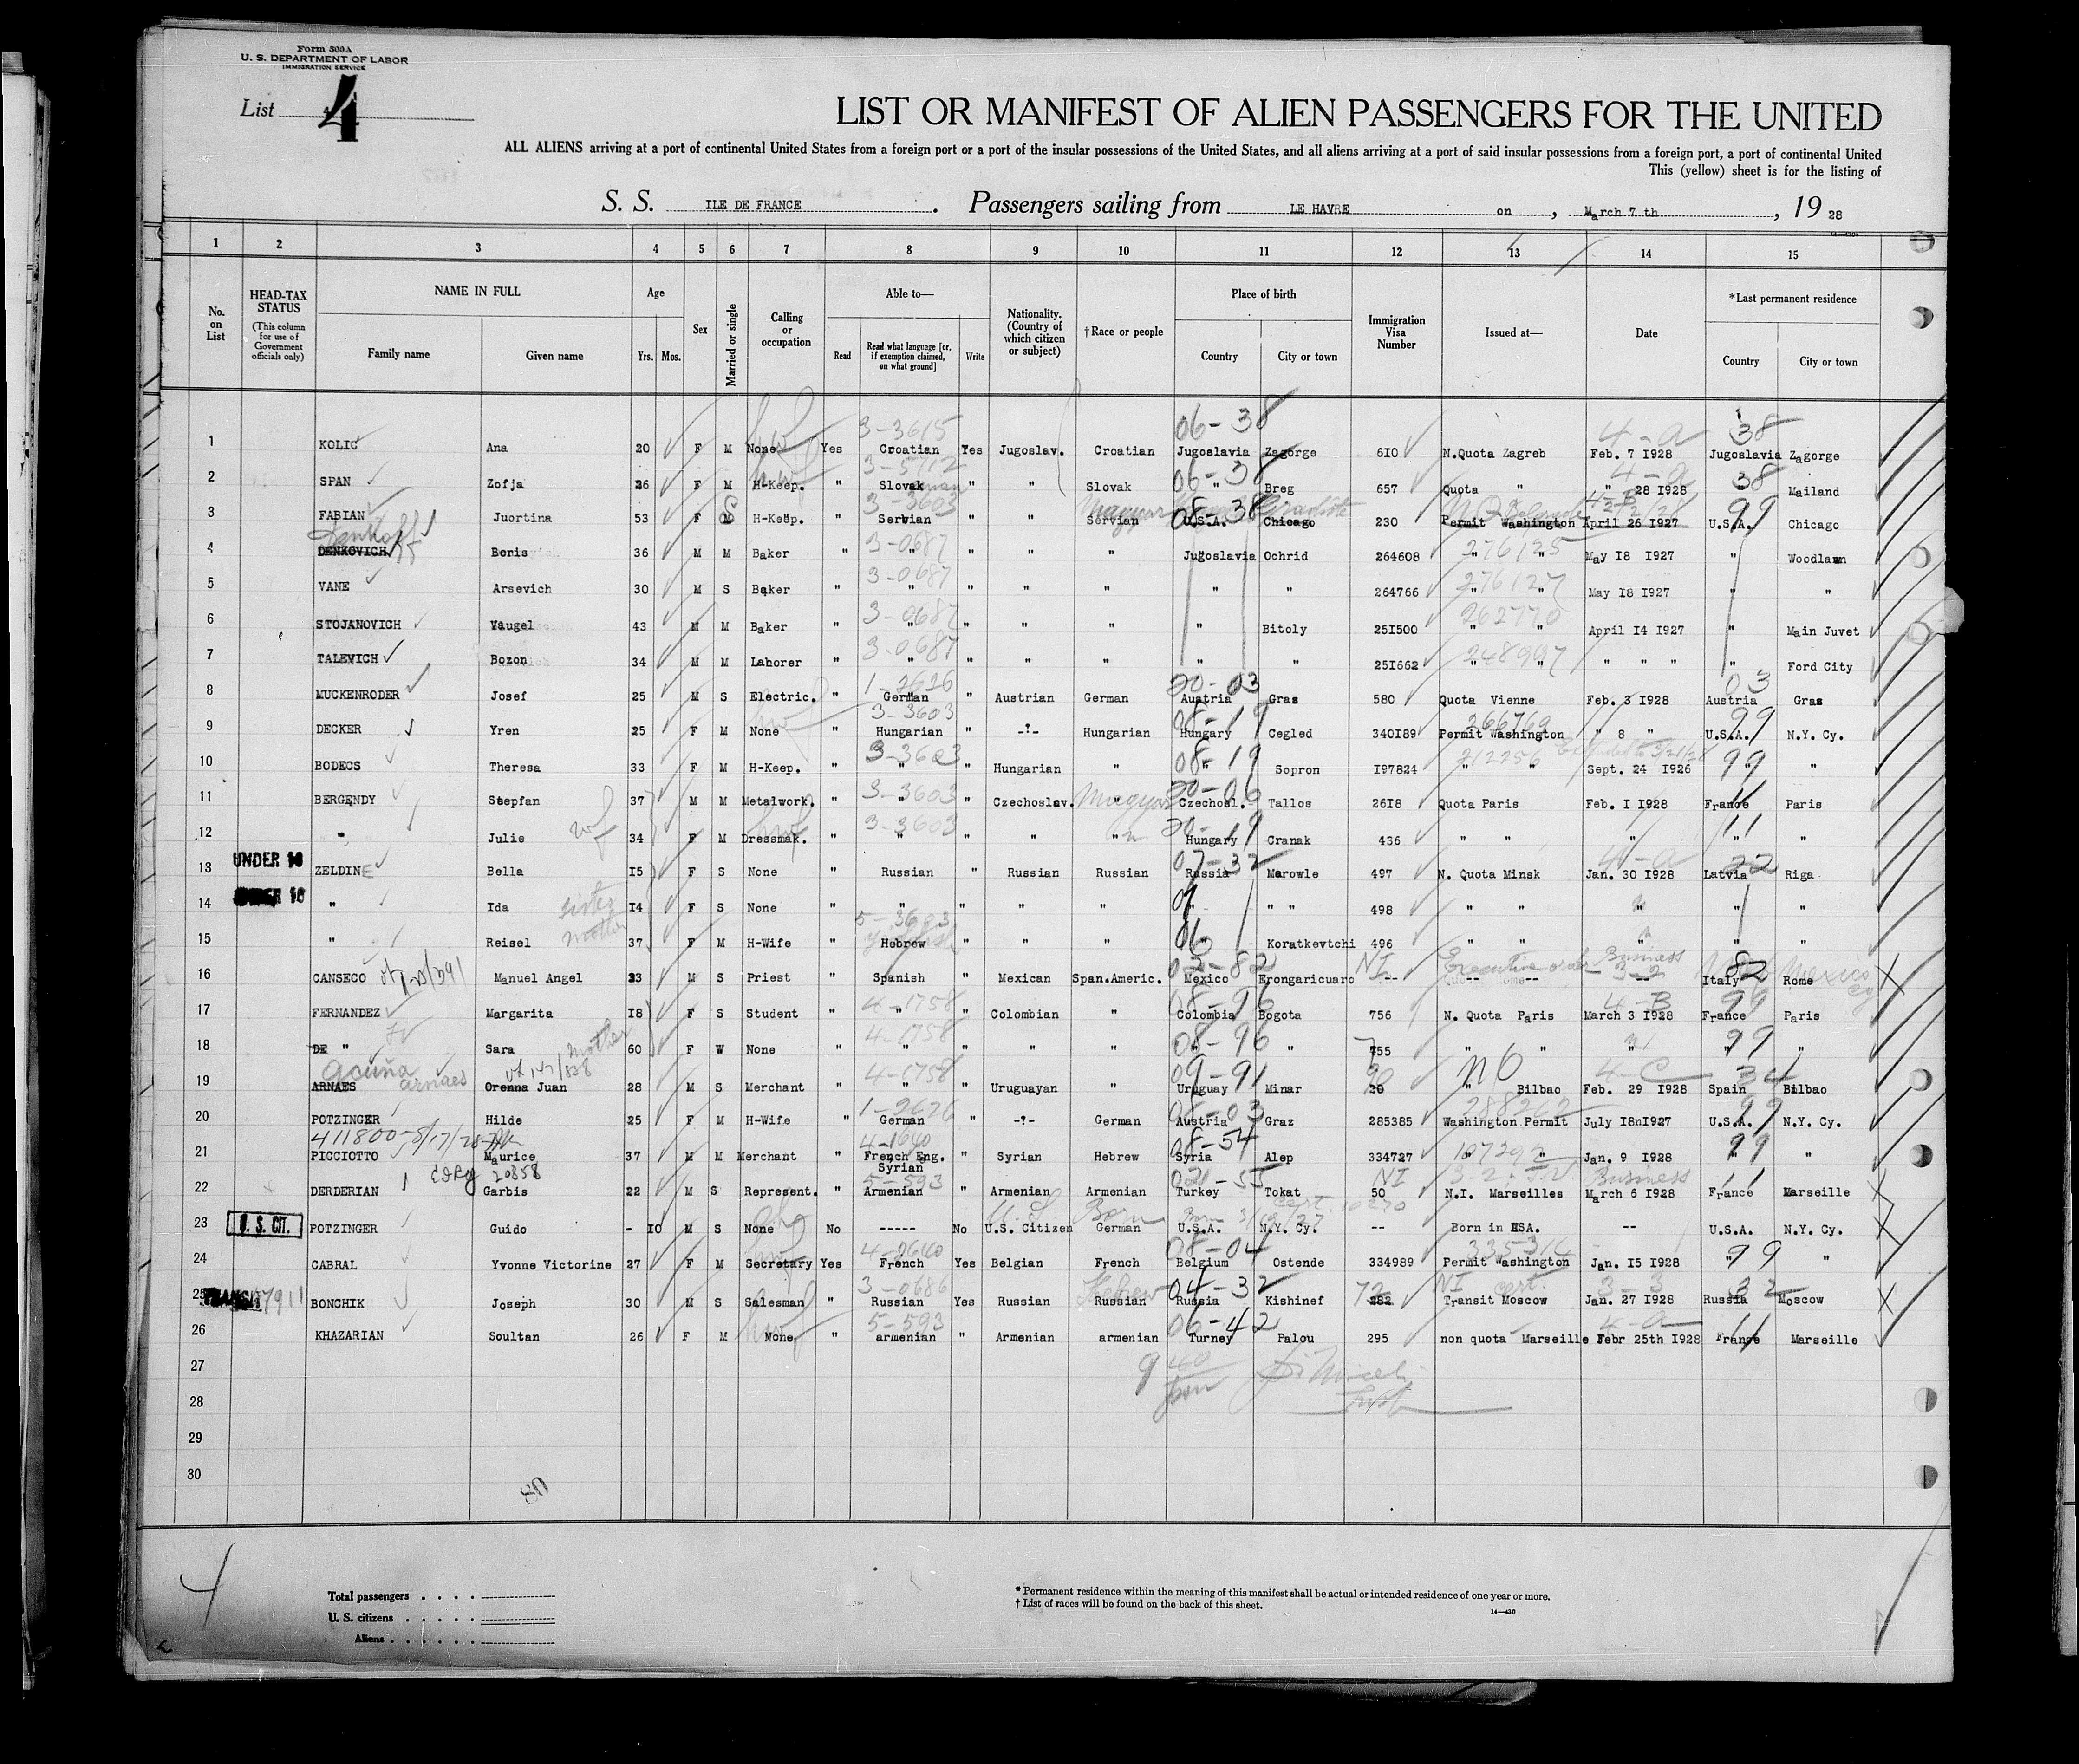 Form 500A
U. S. DEPARTMENT OF LABOR
IMMIGRATION SERVICE
List 4
LIST OR MANIFEST OF ALIEN PASSENGERS FOR THE UNITED
ALL ALIENS arriving at a port of continental United States from a foreign port or a port of the insular possessions of the United States, and all aliens arriving at a port of said insular possessions from a foreign port, a port of continental United
This (yellow) sheet is for the listing of
S. S. ILE DE FRANCE. Passengers sailing from LE HAVRE on, March 7 th, 19 28
1 2 3 4 5 6 7 8 9 10 11 12 13 14 15
No. on List
HEAD-TAX STATUS (This column for use of Government officials only)
NAME IN FULL
Family name Given name
Age
Yrs. Mos.
Sex
Married or single
Calling or occupation
Able to—
Read Read what language [or, if exemption claimed, on what ground] Write
Nationality. (Country of which citizen or subject)
†Race or people
Place of birth
Country City or town
Immigration Visa Number
Issued at—
Date
*Last permanent residence
Country City or town
3-3615 06-38 4-a 38
1 KOLIC Ana 20 F M None Yes Croatian Yes Jugoslav. Croatian Jugoslavia Zagorge 610 N.Quota Zagreb Feb. 7 1928 Jugoslavia Zagorge
3-5712 06-38 4-a 38
2 SPAN Zofja 26 F M H-Keep. " Slovak " " Slovak " Breg 657 Quota " " 28 1928 Mailand
3-3603 Magyar 08-38 99
3 FABIAN Juortina 53 F M H-Keep. " Servian " " Servian U.S.A. Chicago 230 Permit Washington April 26 1927 U.S.A. Chicago
Denkoff 3-0687 276125
4 DENKOVICH Boris 36 M M Baker " " " " " Jugoslavia Ochrid 264608 " " May 18 1927 " Woodlawn
3-0687 276127
5 VANE Arsevich 30 M S Baker " " " " " " " 264766 " " May 18 1927 " "
3-0687 262770
6 STOJANOVICH Vaugel 43 M M Baker " " " " " " Bitoly 251500 " " April 14 1927 " Main Juvet
3-0687 248997
7 TALEVICH Bozon 34 M M Laborer " " " " " " " 251662 " " " " " " Ford City
1-2626 20-03 03
8 MUCKENRODER Josef 25 M S Electric. " German " Austrian German Austria Gras 580 Quota Vienne Feb. 3 1928 Austria Gras
3-3603 08-19 266769 99
9 DECKER Yren 25 F M None " Hungarian " -?- Hungarian Hungary Cegled 340189 Permit Washington " 8 " U.S.A. N.Y. Cy.
3-3603 08-19 212256 99
10 BODECS Theresa 33 F M H-Keep. " " " Hungarian " " Sopron 197824 " " Sept. 24 1926 " "
3-3603 Magyar 20-06 11
11 BERGENDY Stepfan 37 M M Metalwork. " " " Czechoslav. " Czechosl. Tallos 2618 Quota Paris Feb. 1 1928 France Paris
wf 3-3603 20-19 11
12 " Julie 34 F M Dressmak. " " " " " Hungary Cranak 436 " " " " "
UNDER 16 07-32 4-a 22
13 ZELDINE Bella 15 F S None " Russian " Russian Russian Russia Marowle 497 N. Quota Minsk Jan. 30 1928 Latvia Riga
14 " Ida sister 14 F S None " " " " " " " " 498 " " " " "
mother 5-3683 06
15 " Reisel 37 F M H-Wife " Hebrew " " " " Koratkevtchi 496 " " " " "
02-82 NI Executive order Business 3-2 82 Mexico Cy
16 CANSECO Manuel Angel 23 M S Priest " Spanish " Mexican Span.Americ. Mexico Erongaricuaro --- Italy Rome
4-1758 08-96 4-B 99
17 FERNANDEZ Margarita 18 F S Student " " " Colombian " Colombia Bogota 756 N. Quota Paris March 3 1928 France Paris
mother 4-1758 08-96 99
18 DE " Sara 60 F W None " " " " " " " 755 " " " " "
Acuña arnaes 4-1758 09-91 4-C 34
19 ARNAES Orenna Juan 28 M S Merchant " " " Uruguayan " Uruguay Minar 20 " Bilbao Feb. 29 1928 Spain Bilbao
1-2626 08-03 288262 99
20 POTZINGER Hilde 25 F M H-Wife " German " -?- German Austria Graz 285385 Washington Permit July 18n1927 U.S.A. N.Y. Cy.
411800-5/17/28 4-1640 08-54 107292 99
21 PICCIOTTO Maurice 37 M M Merchant " French Eng. Syrian " Syrian Hebrew Syria Alep 334727 " " Jan. 9 1928 " "
20858 5-593 NI 3-2 Business 11
22 DERDERIAN Garbis 22 M S Represent. " Armenian " Armenian Armenian Turkey Tokat 50 N.I. Marseilles March 6 1928 France Marseille
U. S. CIT. U.S. Born
23 POTZINGER Guido - 10 M S None No ----- No U.S. Citizen German U.S.A. N.Y. Cy. -- Born in USA. -- U.S.A. N.Y. Cy.
4-0640 08-04 335314 99
24 CABRAL Yvonne Victorine 27 F M Secretary Yes French Yes Belgian French Belgium Ostende 334989 Permit Washington Jan. 15 1928 " "
TRANSIT 3-0686 Hebrew 04-32 72 NI cert. 3-3 32
25 BONCHIK Joseph 30 M S Salesman " Russian Yes Russian Russian Russia Kishinef 282 Transit Moscow Jan. 27 1928 Russia Moscow
5-593 06-42 4-a 11
26 KHAZARIAN Soultan 26 F M None " armenian " Armenian armenian Turney Palou 295 non quota Marseille Febr 25th 1928 France Marseille
27
28
29
30
80
4
Total passengers . . . .
U. S. citizens . . . . .
Aliens . . . . . .
* Permanent residence within the meaning of this manifest shall be actual or intended residence of one year or more.
† List of races will be found on the back of this sheet.
14—430